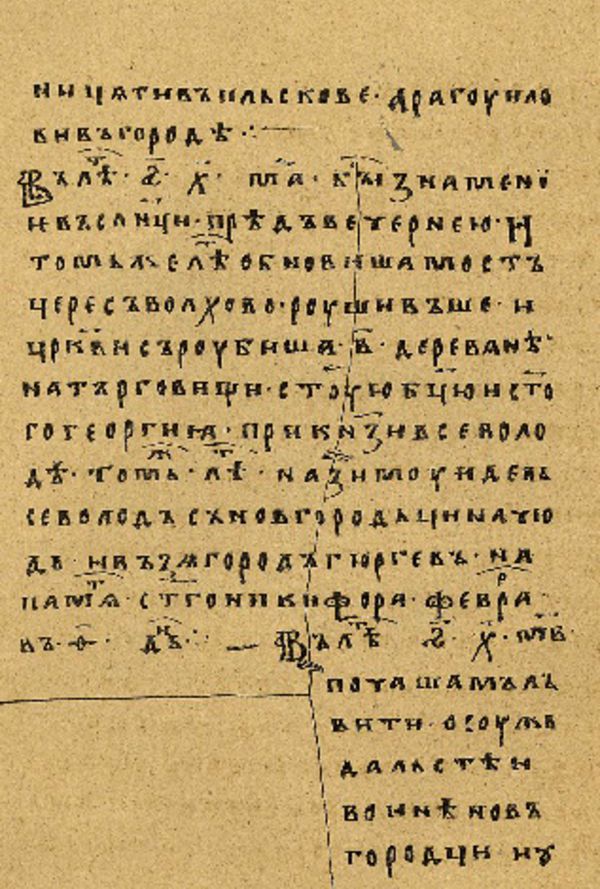 ничѧти въ пльсковѣ · драгоуило
ви въ городѣ ·
Въ лѣⷮ · ҂ѕ · х҃ · м҃а · бы знамениѥ
и въ слн҃ци · прѣдъ вечернею · и
томь же лѣⷮ обновиша мостъ
чересъ волхово · роушивъше · и
цр҃кви съроубиша · в҃ · деревѧнѣ
на търговищи · ст҃ою бц҃ю и ст҃о
го георгиꙗ · при кнѧзи всеволо
дѣ · томь же лѣⷮ · на зимоу иде вь
севолодъ съ новгородьци на чю
дь · и възѧ городъ гюргевъ · на
памѧⷮ · ст҃го никифора · феврⷬа
въ · ѳ҃ · дн҃ь · Въ лѣⷮ · ҂ѕ · х҃ · м҃в
почаша мъл
вити о соужь
дальстѣи
воинѣ нов
городци и оу